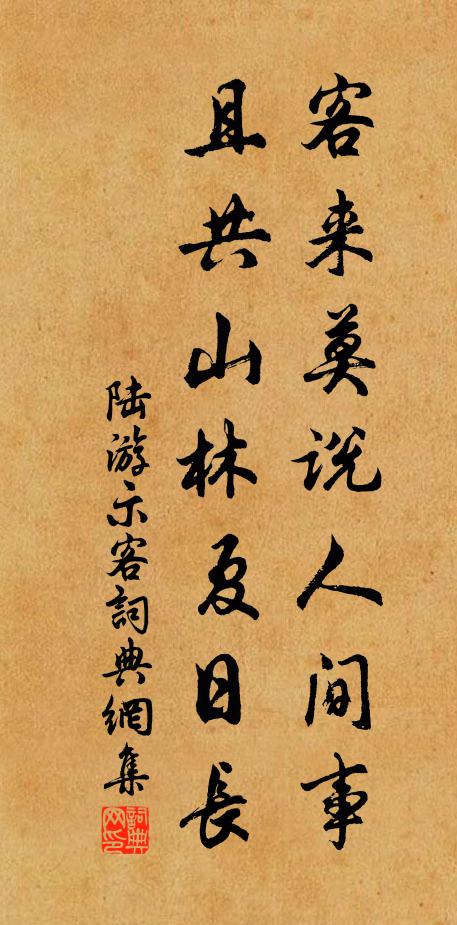 客来莫说人间事
且共山林夏日长
陆游示客詞典網集
詞典网印